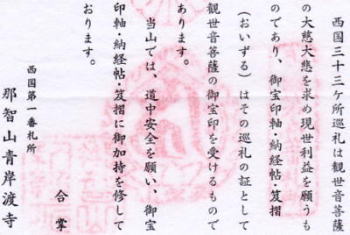 西国三十三ケ所巡礼は観世音菩薩
の大慈大悲を求め現世利益を願うも
のであり、御宝印軸・納経帖・笈摺
(おいずる)はその巡礼の証として
観世音菩薩の御宝印を受けるもので
あります。
当山では、道中安全を願い、御宝
印軸・納経帖・笈摺に御加持を修して
おります。
合掌
西国第一番札所
那智山青岸渡寺